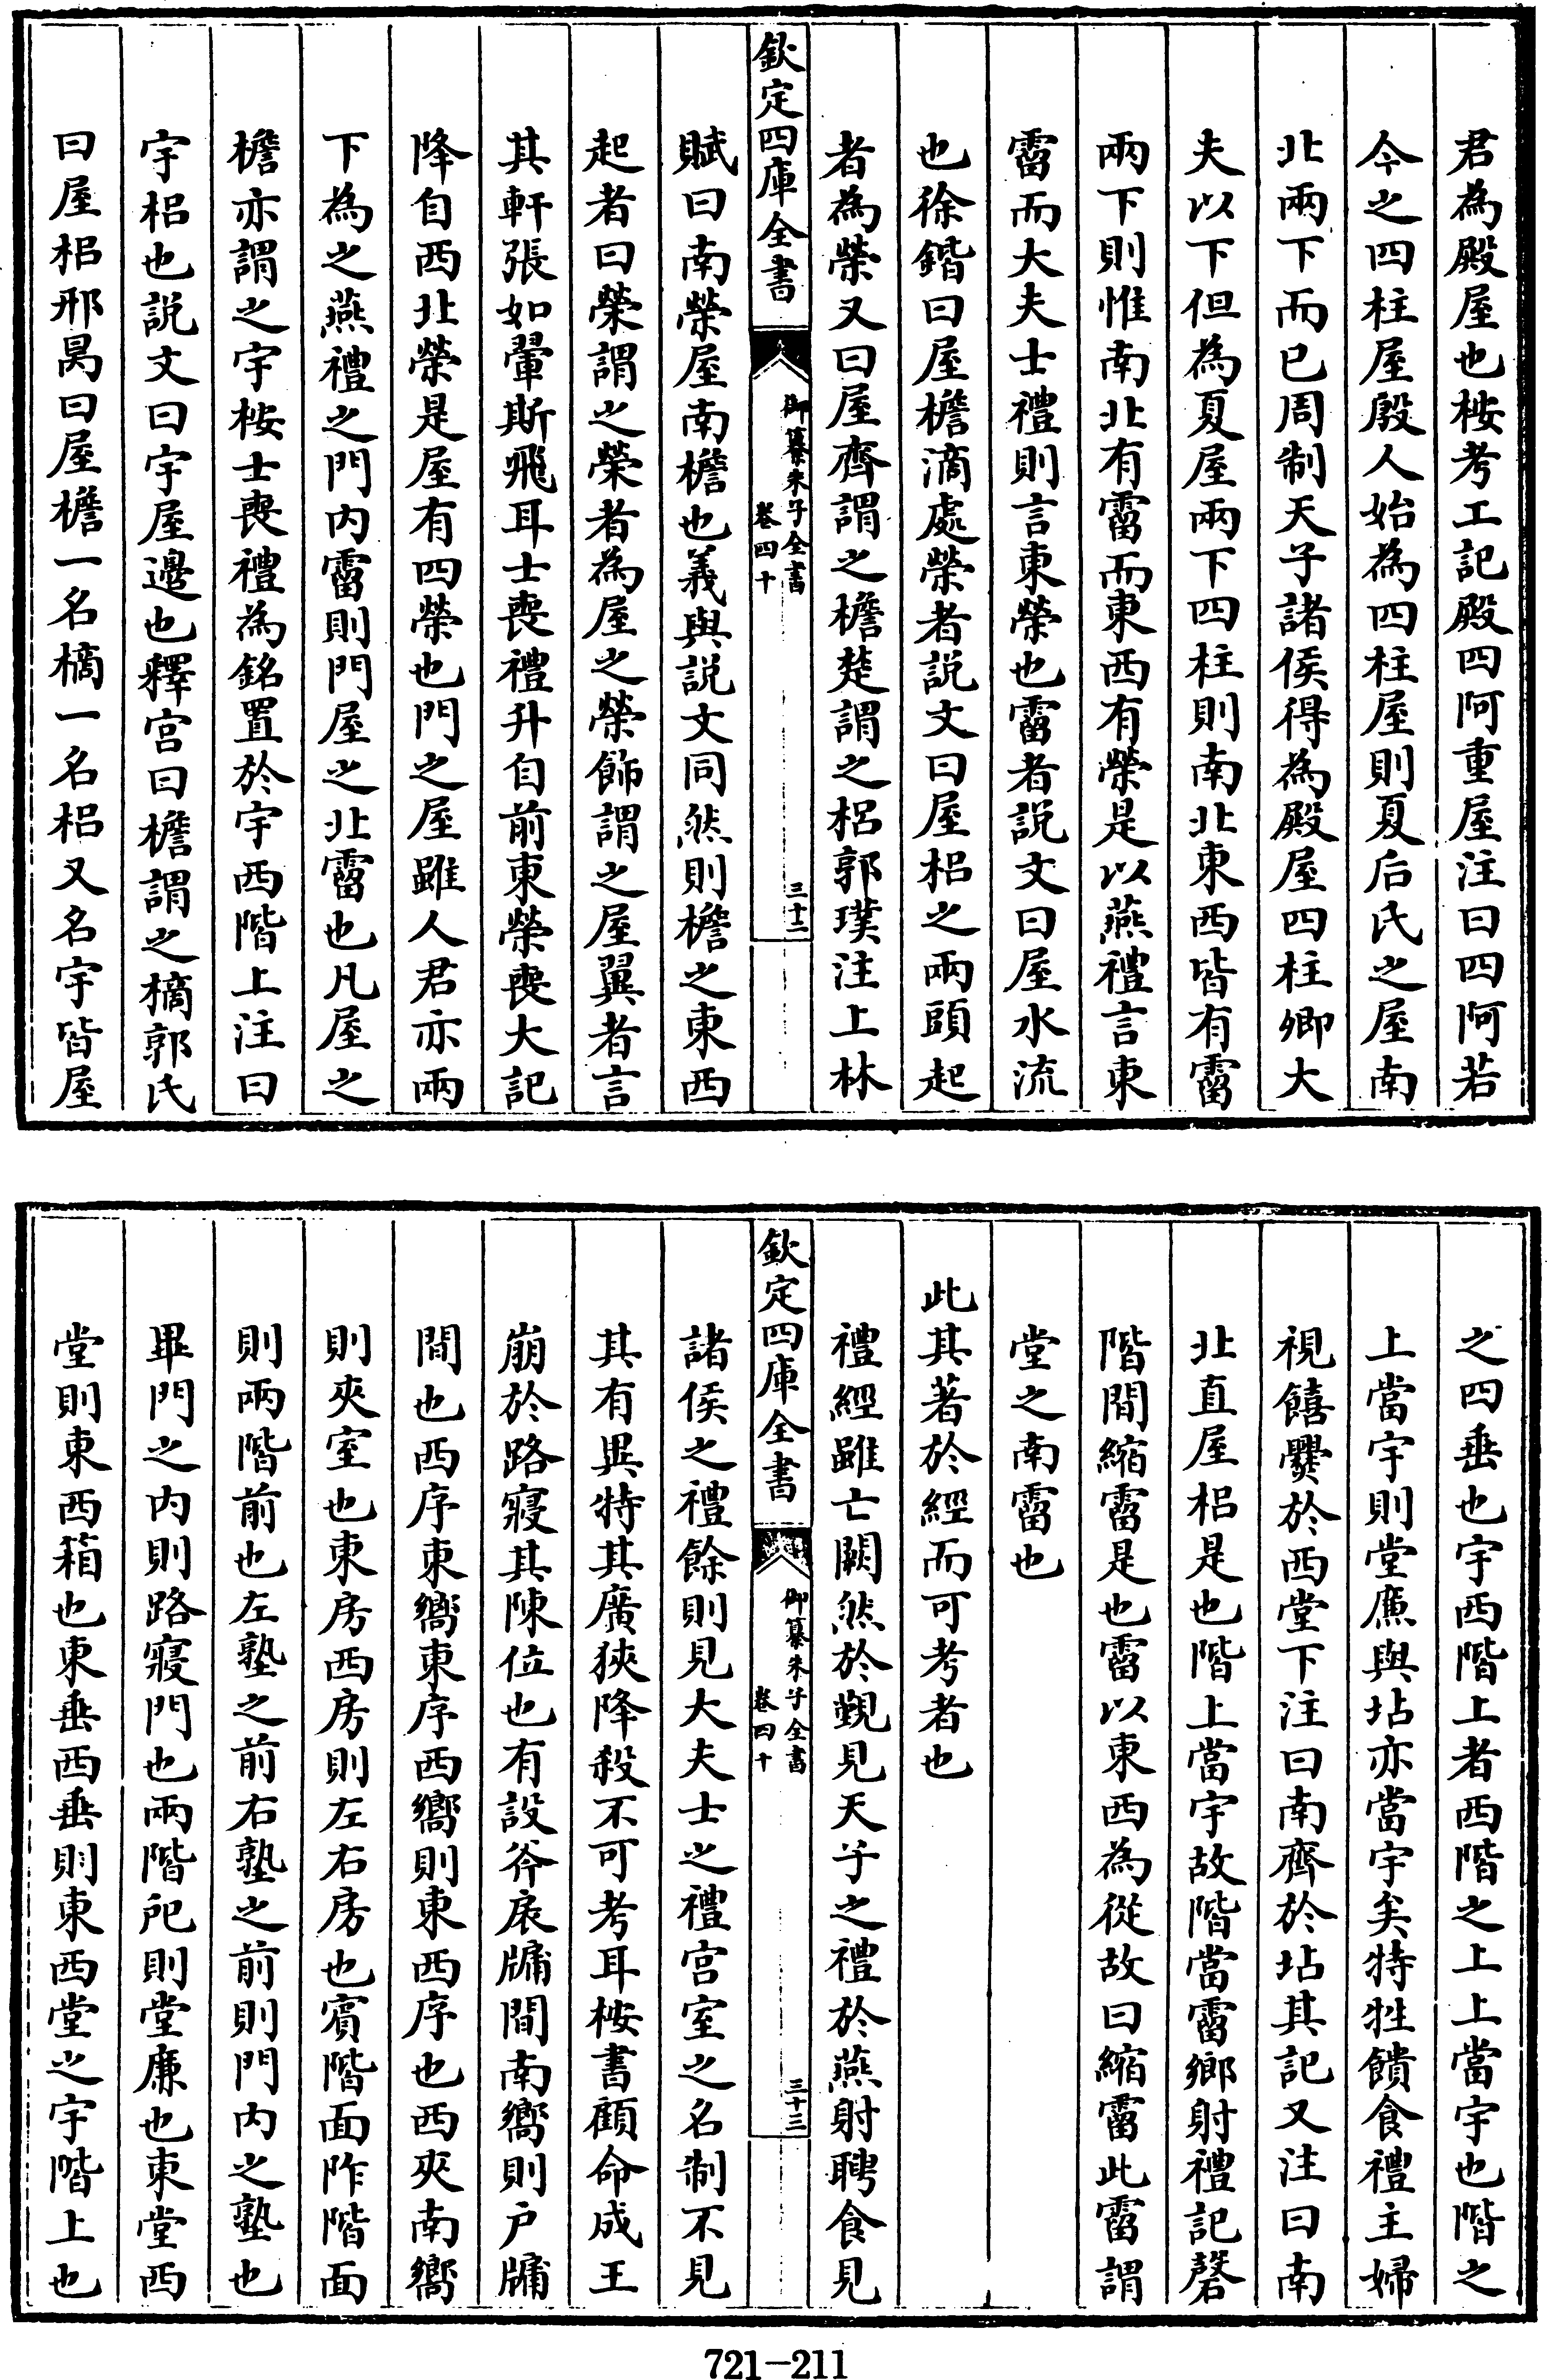 君為殿屋也桉考工記殿四阿重屋注曰四阿若
今之四柱屋殷人始為四柱屋則夏后氏之屋南
北兩下而已周制天子諸侯得為殿屋四柱卿大
夫以下但為夏屋兩下四柱則南北東西皆有霤
兩下則惟南北有霤而東西有榮是以燕禮言東
霤而大夫士禮則言東榮也霤者説文曰屋水流
也徐鍇曰屋檐滴處榮者説文曰屋梠之兩頭起
者為榮又曰屋齊謂之檐楚謂之梠郭璞注上林
欽定四庫全書
御纂朱子全書
卷四十
三十二
賦曰南榮屋南檐也義與説文同然則檐之東西
起者曰榮謂之榮者為屋之榮飾謂之屋翼者言
其軒張如翬斯飛耳士喪禮升自前東榮喪大記
降自西北榮是屋有四榮也門之屋雖人君亦兩
下為之燕禮之門内霤則門屋之北霤也凡屋之
檐亦謂之宇桉士喪禮為銘置於宇西階上注曰
宇梠也説文曰宇屋邊也釋宫曰檐謂之樀郭氏
曰屋梠邢昺曰屋檐一名樀一名梠又名宇皆屋
之四垂也宇西階上者西階之上上當宇也階之
上當宇則堂㢘與坫亦當宇矣特牲饋食禮主婦
視饎爨於西堂下注曰南齊於坫其記又注曰南
北直屋梠是也階上當宇故階當霤鄉射禮記磬
階間縮霤是也霤以東西為從故曰縮霤此霤謂
堂之南霤也
此其著於經而可考者也
禮經雖亡闕然於覲見天子之禮於燕射聘食見
欽定四庫全書
御纂朱子全書
卷四十
三十三
諸侯之禮餘則見大夫士之禮宫室之名制不見
其有異特其廣狹降殺不可考耳桉書顧命成王
崩於路寢其陳位也有設斧扆牖間南嚮則户牖
間也西序東嚮東序西嚮則東西序也西夾南嚮
則夾室也東房西房則左右房也賓階面阼階面
則兩階前也左塾之前右塾之前則門内之塾也
畢門之内則路寢門也兩階戺則堂廉也東堂西
堂則東西箱也東垂西垂則東西堂之宇階上也
721-211